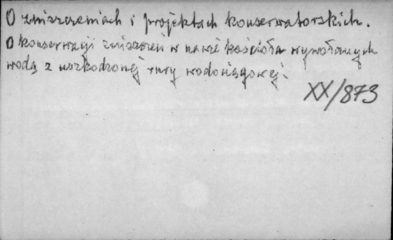 O zniszczeniach i projektach konserwatorskich.
O konserwacji zniszczeń w nawie kościoła wywołanych
wodą z uszkodzonej rury wodociągowej.
XX/873